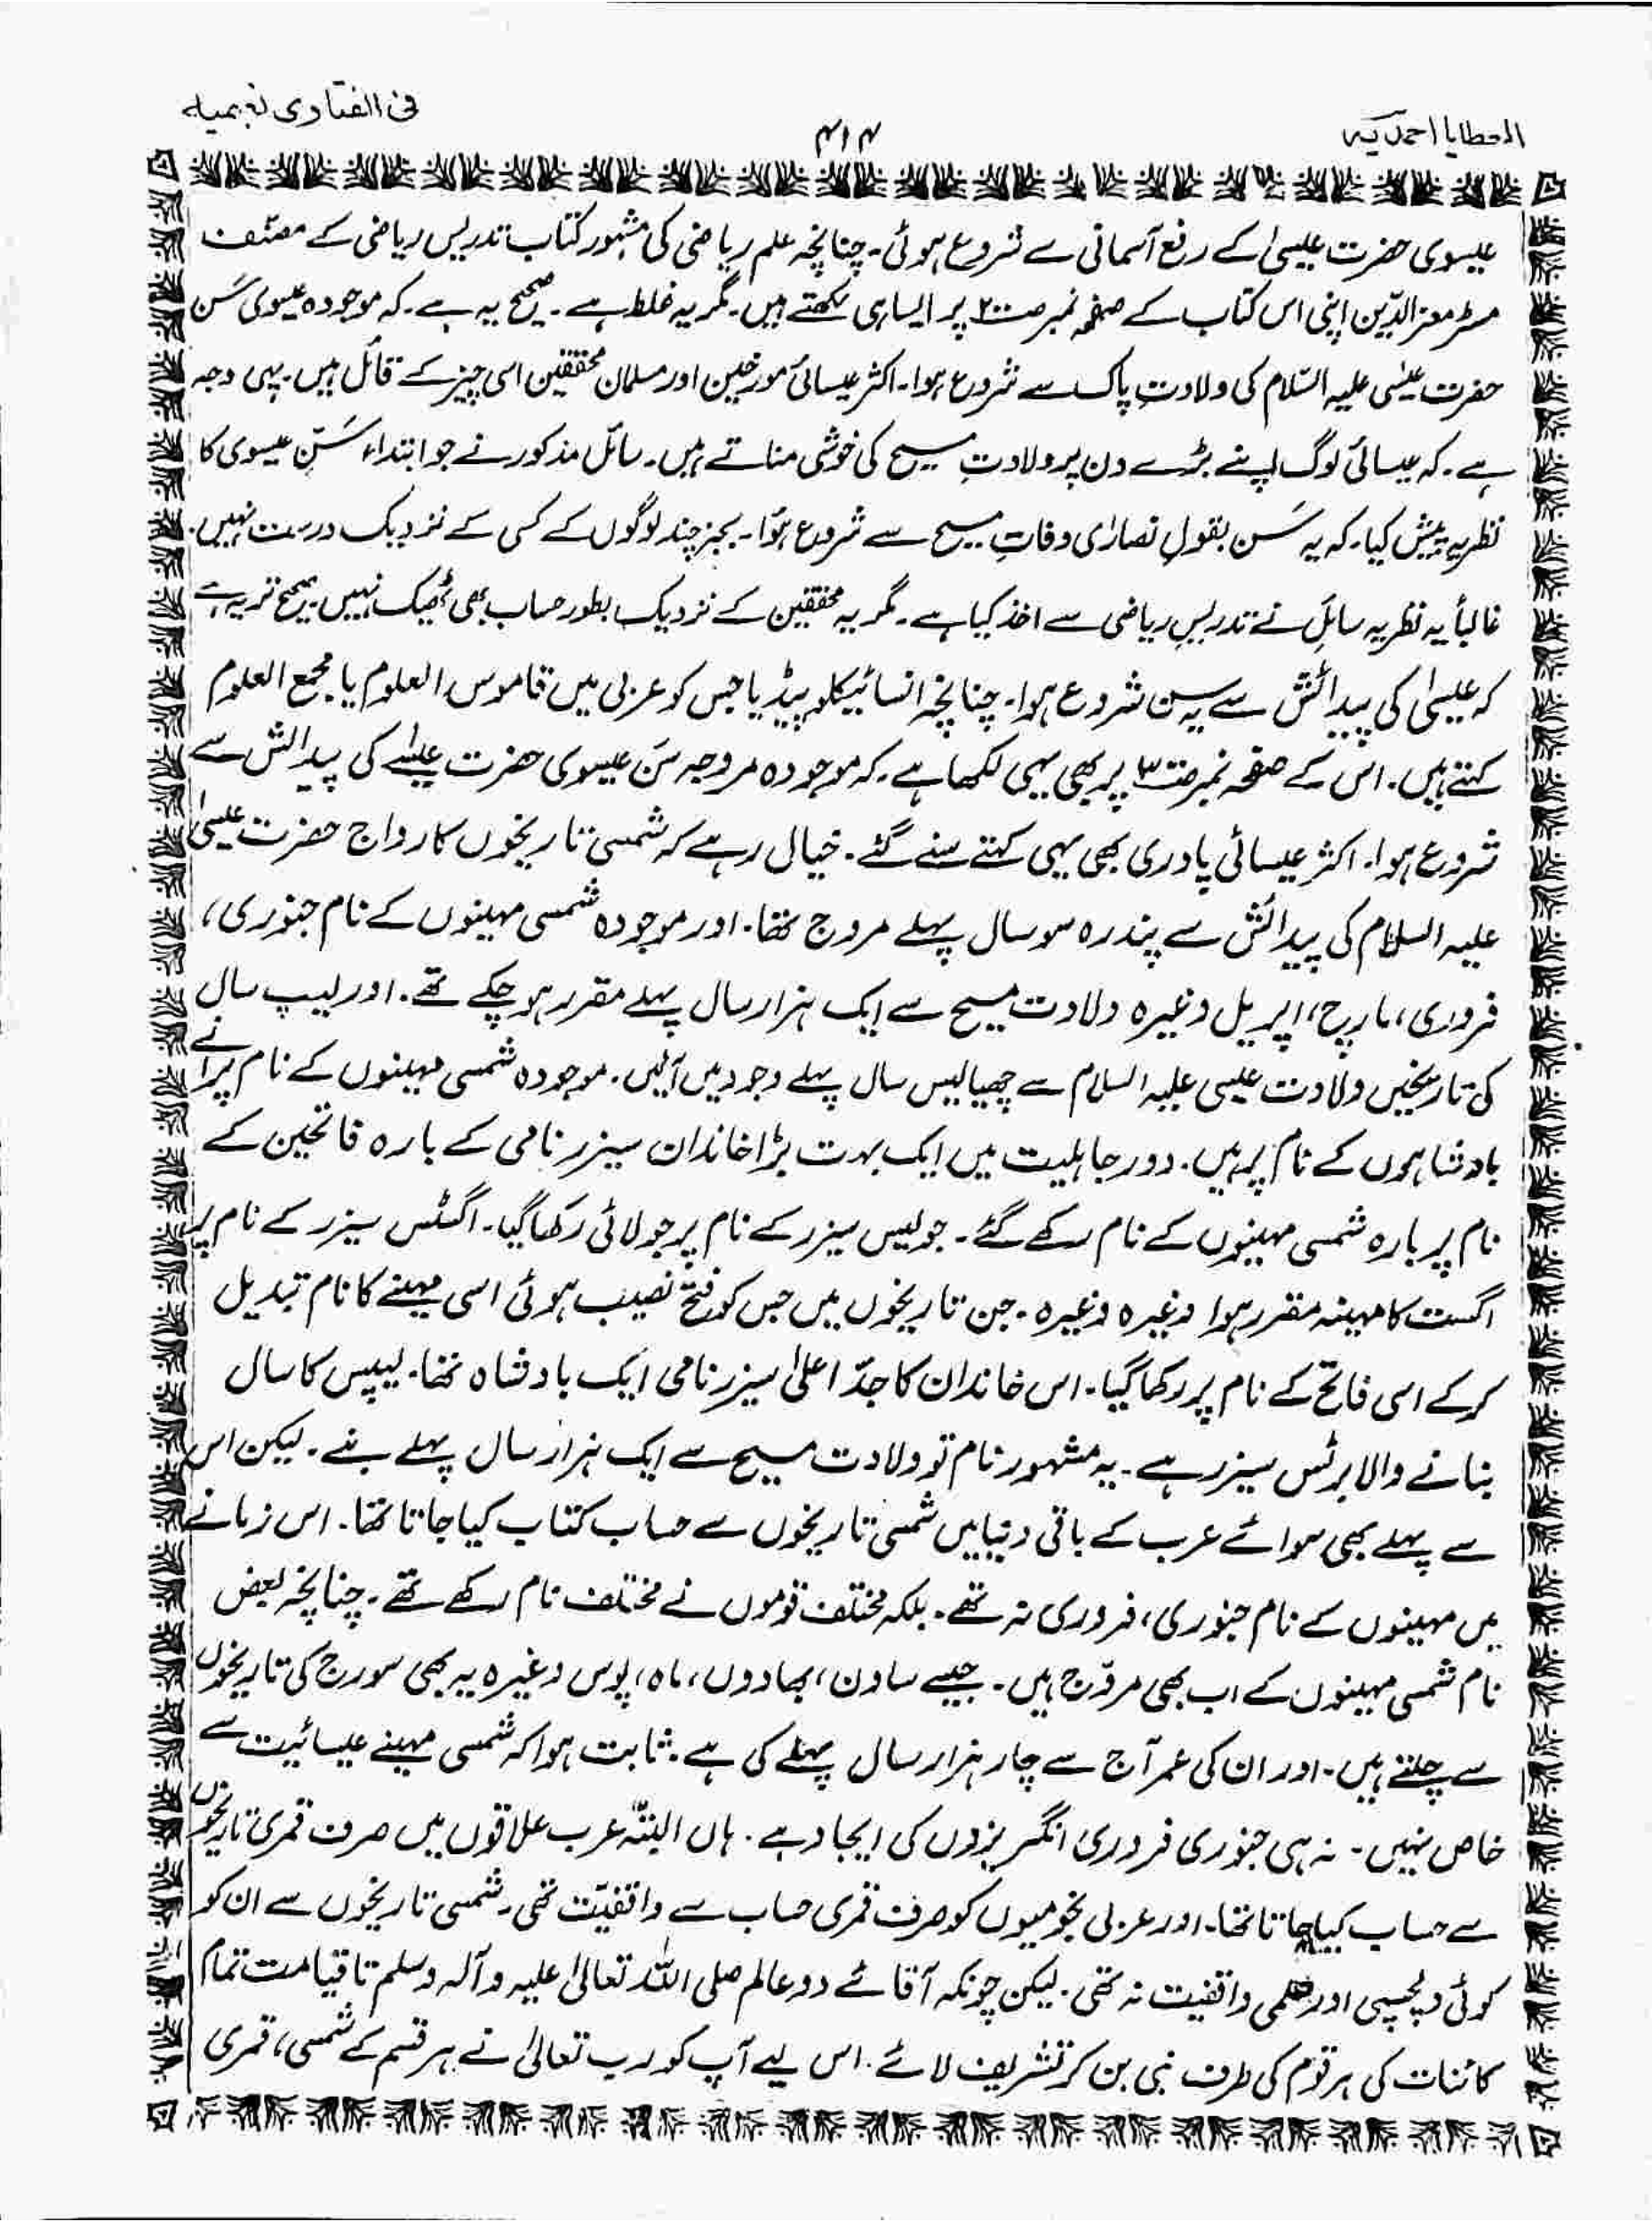 العطایا احمدیہ
۴۱۴
فی الفتاوی نعیمیہ
عیسوی حضرت عیسیٰ کے رفع آسمانی سے شروع ہوئی۔ چنانچہ علم ریاضی کی مشہور کتاب تدریس ریاضی کے مصنّف
مسٹر معز الدّین اپنی اس کتاب کے صفحہ نمبر صـ۲۰ پر ایسا ہی لکھتے ہیں۔ مگر یہ غلط ہے۔ صحیح یہ ہے۔ کہ موجودہ عیسوی سَن
حضرت عیسٰی علیہ السّلام کی ولادتِ پاک سے شروع ہوا۔ اکثر عیسائی مورخین اور مسلمان محققین اسی چیز کے قائل ہیں۔ یہی وجہ
ہے۔ کہ عیسائی لوگ اپنے بڑے دن پر ولادتِ مسیح کی خوشی مناتے ہیں۔ سائل مذکور نے جو ابتداء سَنِّ عیسوی کا
نظریہ پیش کیا۔ کہ یہ سَن بقولِ نصارٰی وفاتِ مسیح سے شروع ہُوا۔ بجز چند لوگوں کے کسی کے نزدیک درست نہیں۔
غالباً یہ نظریہ سائل نے تدریسِ ریاضی سے اخذ کیا ہے۔ مگر یہ محققین کے نزدیک بطور حساب بھی ٹھیک نہیں۔ صحیح تر یہ ہے
کہ عیسیٰ کی پیدائش سے یہ سن شروع ہوا۔ چنانچہ انسائیکلو پیڈیا جس کو عربی میں قاموس العلوم یا مجمع العلوم
کہتے ہیں۔ اس کے صفحہ نمبر پر بھی یہی لکھا ہے۔ کہ موجودہ مروجہ سَن عیسوی حضرت عیسٰے کی پیدائش سے
شروع ہوا۔ اکثر عیسائی پادری بھی یہی کہتے سنے گئے۔ خیال رہے کہ شمسی تاریخوں کا رواج حضرت عیسیٰ
علیہ السلام کی پیدائش سے پندرہ سو سال پہلے مروج تھا۔ اور موجودہ شمسی مہینوں کے نام جنوری،
فروری، مارچ، اپریل وغیرہ ولادت مسیح سے ایک ہزار سال پہلے مقرر ہو چکے تھے۔ اور لیپ سال
کی تاریخیں ولادت عیسی علیہ السلام سے چھیالیس سال پہلے وجود میں آئیں۔ موجودہ شمسی مہینوں کے نام پرانے
بادشاہوں کے نام پر ہیں۔ دور جاہلیت میں ایک بہت بڑا خاندان سیزر نامی کے بارہ فاتحین کے
نام پر بارہ شمسی مہینوں کے نام رکھے گئے۔ جولیس سیزر کے نام پر جولائی رکھا گیا۔ اگسٹس سیزر کے نام پر
اگست کا مہینہ مقرر ہوا وغیرہ وغیرہ۔ جن تاریخوں میں جس کو فتح نصیب ہوئی اسی مہینے کا نام تبدیل
کر کے اسی فاتح کے نام پر رکھا گیا۔ اس خاندان کا جدّ اعلیٰ سیزر نامی ایک بادشاہ تھا۔ لیپس کا سال
بنانے والا برٹس سیزر ہے۔ یہ مشہور نام تو ولادت مسیح سے ایک ہزار سال پہلے بنے۔ لیکن اس
سے پہلے بھی سوائے عرب کے باقی دنیا میں شمسی تاریخوں سے حساب کتاب کیا جاتا تھا۔ اس زمانے
میں مہینوں کے نام جنوری، فروری نہ تھے۔ بلکہ مختلف قوموں نے مختلف نام رکھے تھے۔ چنانچہ بعض
نام شمسی مہینوں کے اب بھی مروّج ہیں۔ جیسے ساون، بھادوں، ماہ، پوس وغیرہ یہ بھی سورج کی تاریخوں
سے چلتے ہیں۔ اور ان کی عمر آج سے چار ہزار سال پہلے کی ہے۔ ثابت ہوا کہ شمسی مہینے عیسائیت سے
خاص نہیں۔ نہ ہی جنوری فروری انگریزوں کی ایجاد ہے۔ ہاں البتّہ عرب علاقوں میں صرف قمری تاریخوں
سے حساب کیا جاتا تھا۔ اور عربی نجومیوں کو صرف قمری حساب سے واقفیّت تھی۔ شمسی تاریخوں سے ان کو
کوئی دلچسپی اور علمی واقفیت نہ تھی۔ لیکن چونکہ آقائے دو عالم صلی اللہ تعالیٰ علیہ و آلہ وسلم تا قیامت تمام
کائنات کی ہر قوم کی طرف نبی بن کر تشریف لائے۔ اس لیے آپ کو رب تعالیٰ نے ہر قسم کے شمسی، قمری